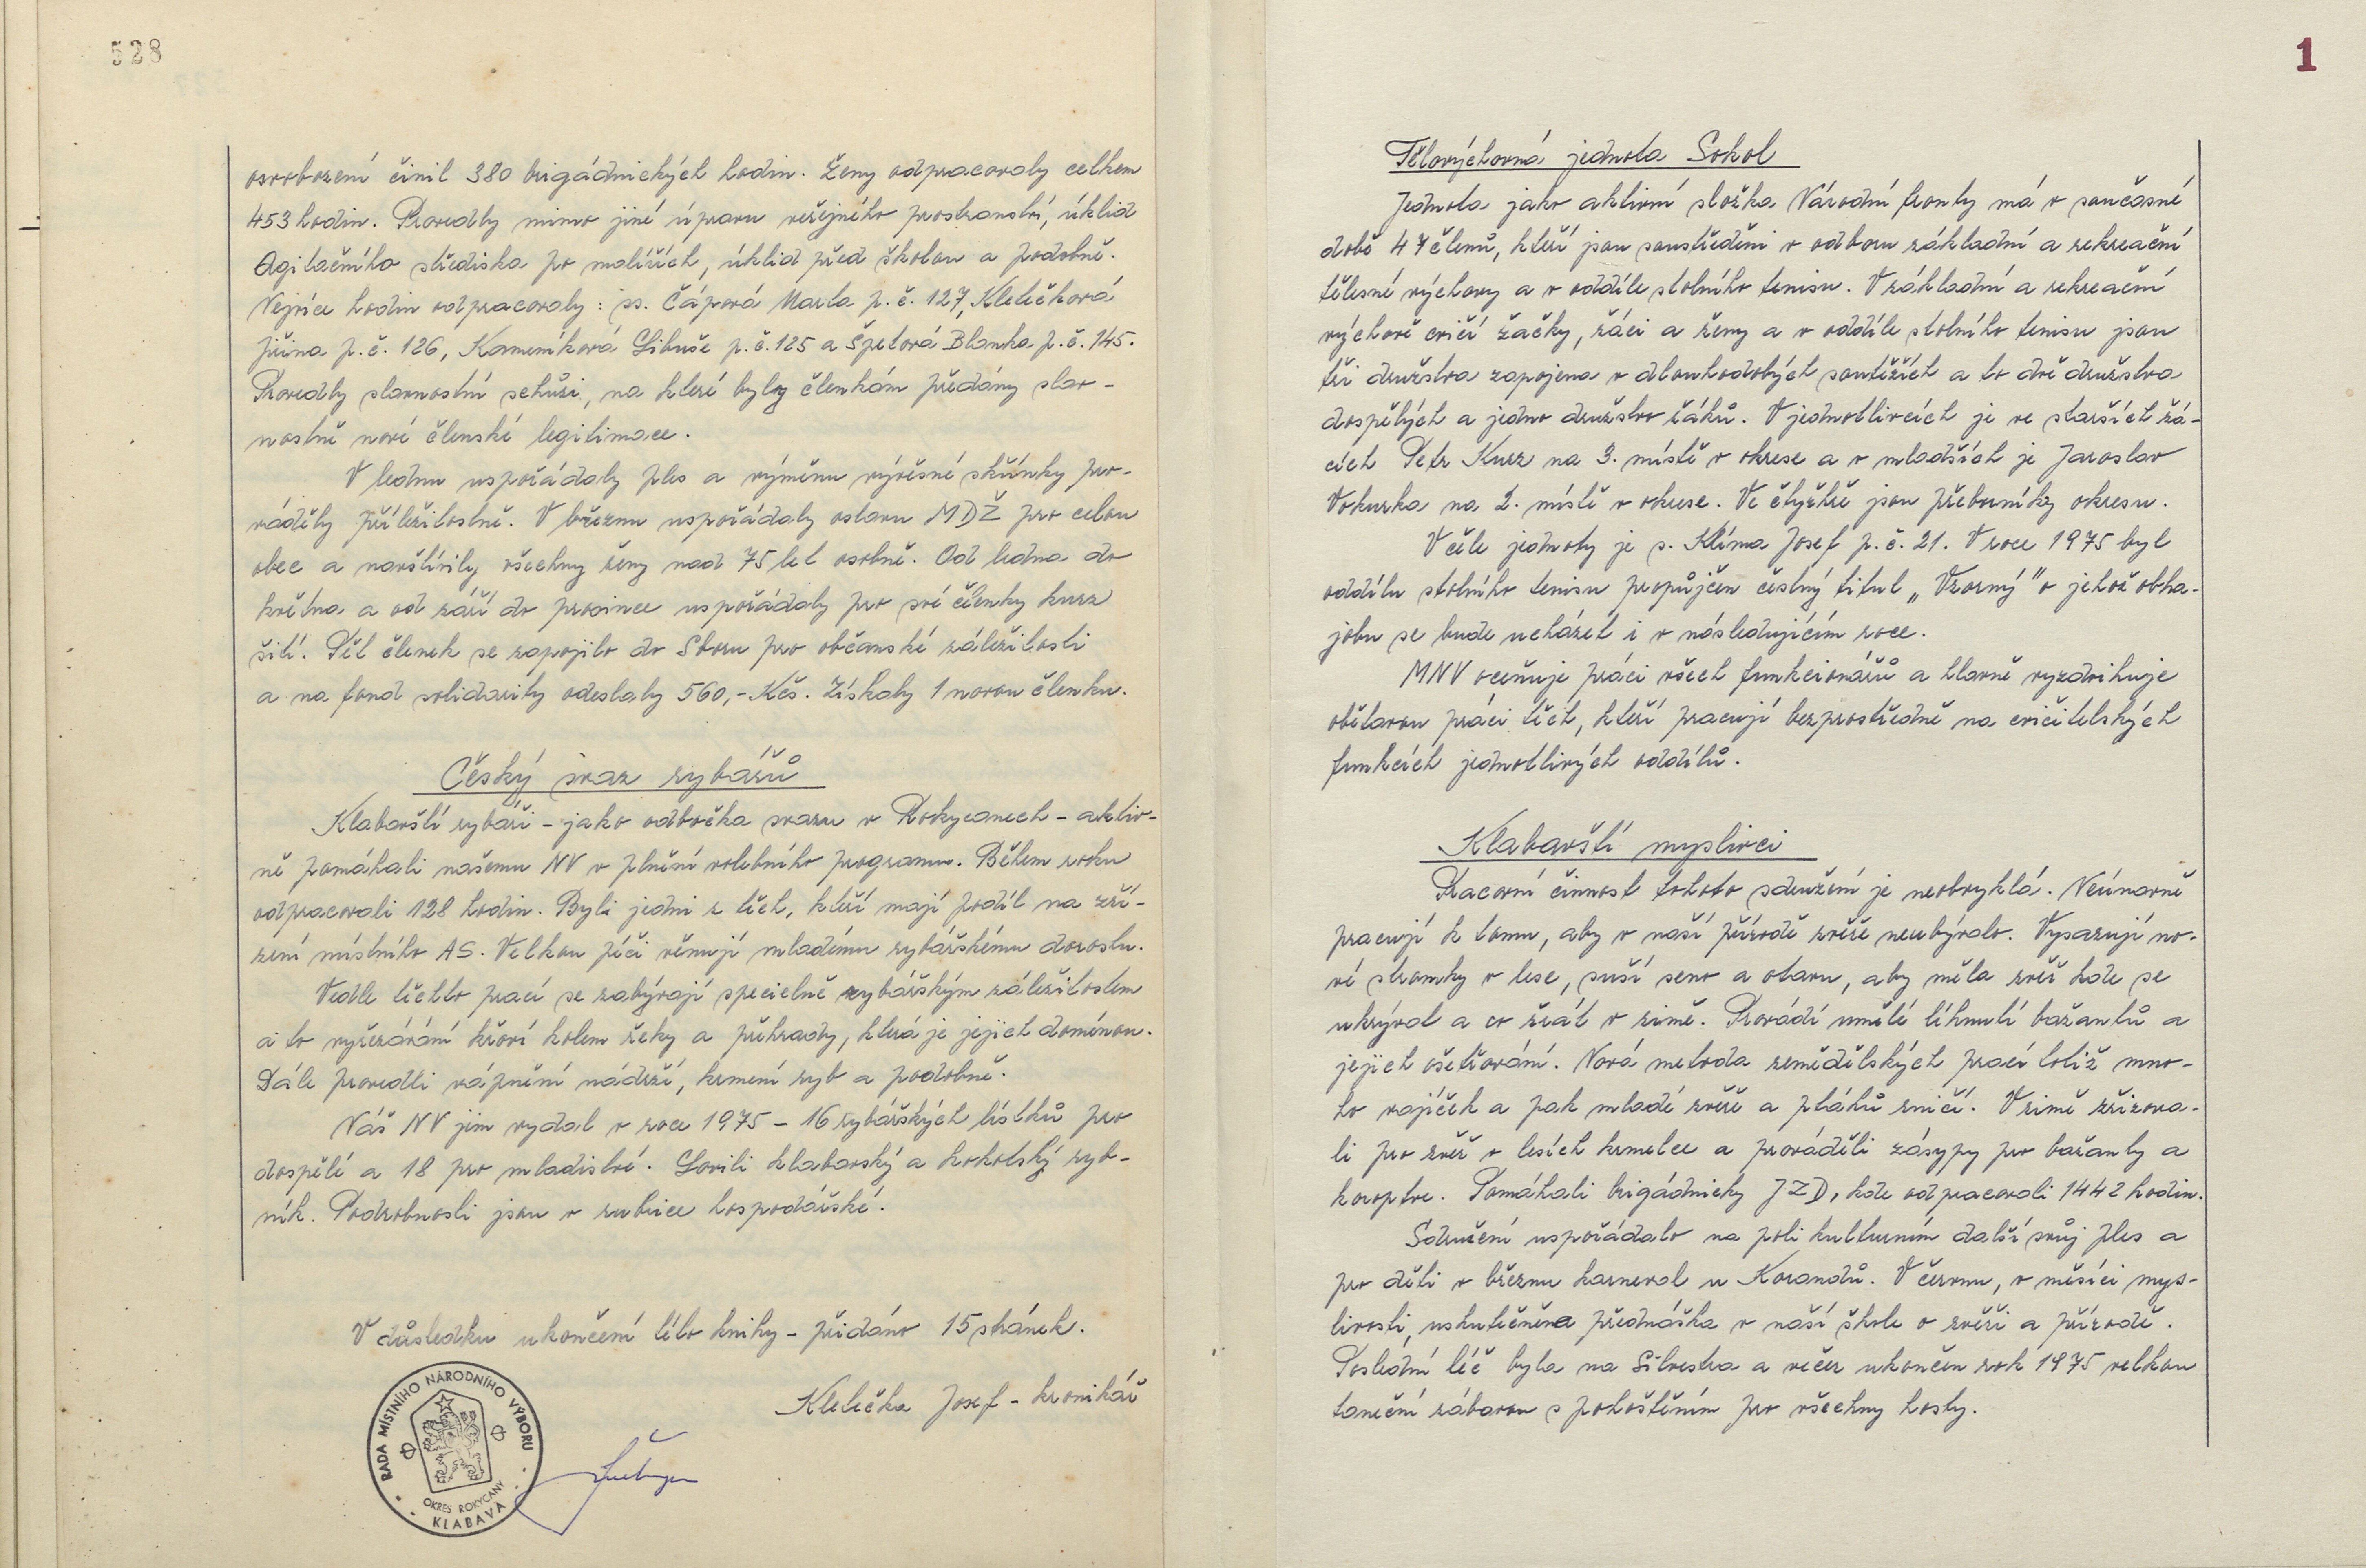 528
osvobození činil 380 brigádnických hodin. Ženy odpracovaly celkem
453 hodin. Provedly mimo jiné úpravu veřejného prostranství, úklid
Agitačního střediska po malířích, úklid před školou a podobně.
Nejvíce hodin odpracovaly: ss. Čápová Marta p.č. 127, Klelečková
Jiřina p.č. 126, Kameníková Libuše p.č. 125 a Špetová Blanka p.č. 145.
Provedly slavnostní schůzi, na které byly členkám předány slav-
nostně nové členské legitimace.
V lednu uspořádaly ples a výměnu vývěsné skřínky pro-
váděly příležitostně. V březnu uspořádaly oslavu MDŽ pro celou
obec a navštívily všechny ženy nad 75 let osobně. Od ledna do
května a od září do prosince uspořádaly pro své členky kurz
šití. Pět členek se zapojilo do Sboru pro občanské záležitosti
a na fond solidarity odeslaly 560,- Kčs. Získaly 1 novou členku.
Český svaz rybářů
Klabavští rybáři - jako odbočka svazu v Rokycanech - aktiv-
ně pomáhali našemu NV v plnění volebního programu. Během roku
odpracovali 128 hodin. Byli jedni z těch, kteří mají podíl na zří-
zení místního AS. Velkou péči věnují mladému rybářskému dorostu.
Vedle těchto prací se zabývají specielně rybářským záležitostem
a to vyřezávání křoví kolem řeky a přehrady, která je jejich doménou.
Dále provedli vápnění nádrží, krmení ryb a podobně.
Náš NV jim vydal v roce 1975 - 16 rybářských lístků pro
dospělé a 18 pro mladistvé. Lovili klabavský a kokotský ryb-
ník. Podrobnosti jsou v rubrice hospodářské.
V důsledku ukončení této knihy - přidáno 15 stránek.
Klelečka Josef - kronikář
RADA MÍSTNÍHO NÁRODNÍHO VÝBORU
OKRES ROKYCANY
KLABAVA
1
Tělovýchovná jednota Sokol
Jednota jako aktivní složka Národní fronty má v současné
době 47 členů, kteří jsou soustředěni v odboru základní a rekreační
tělesné výchovy a v oddíle stolního tenisu. V základní a rekreační
výchově cvičí žačky, žáci a ženy a v oddíle stolního tenisu jsou
tři družstva zapojena v dlouhodobých soutěžích a to dvě družstva
dospělých a jedno družstvo žáků. V jednotlivcích je ve starších žá-
cích Petr Kurz na 3. místě v okrese a v mladších je Jaroslav
Vokurka na 2. místě v okrese. Ve čtyřhře jsou přeborníky okresu.
V čele jednoty je s. Klíma Josef p.č. 21. V roce 1975 byl
oddílu stolního tenisu propůjčen čestný titul „Vzorný" o jehož obha-
jobu se bude ucházet i v následujícím roce.
MNV oceňuje práci všech funkcionářů a hlavně vyzdvihuje
obětavou práci těch, kteří pracují bezprostředně na cvičitelských
funkcích jednotlivých oddílů.
Klabavští myslivci
Pracovní činnost tohoto sdružení je neobvyklá. Neúnavně
pracují k tomu, aby v naší přírodě zvěře neubývalo. Vysazují no-
vé stromky v lese, suší seno a otavu, aby měla zvěř kde se
ukrývat a co žrát v zimě. Provádí umělé líhnutí bažantů a
jejich ošetřování. Nová metoda zemědělských prací totiž mno-
ho vajíček a pak mladé zvěře a ptáků zničí. V zimě zřizova-
li pro zvěř v lesích krmelce a prováděli zásypy pro bažanty a
koroptve. Pomáhali brigádnicky JZD, kde odpracovali 1442 hodin.
Sdružení uspořádalo na poli kulturním další svůj ples a
pro děti v březnu karneval u Korandů. V červnu, v měsíci mys-
livosti, uskutečněna přednáška v naší škole o zvěři a přírodě.
Poslední léč byla na Silvestra a večer ukončen rok 1975 velkou
taneční zábavou s pohoštěním pro všechny hosty.